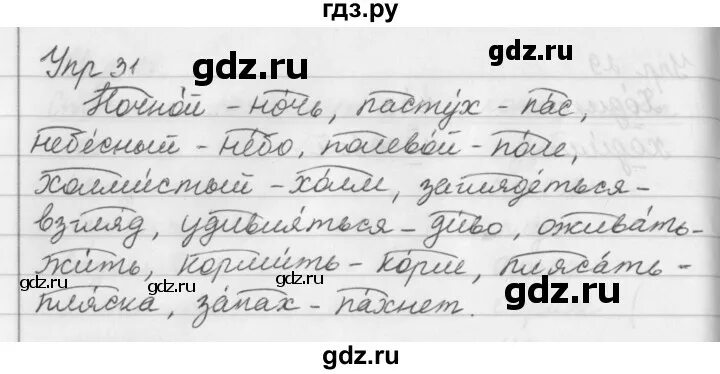 гдз.ру
gdz.ru gdz.ru
Упр 31
Ночной - ночь, пастух - пас,
небесный - небо, полевой - поле,
холмистый - холм, заглядеться-
взгляд, удивляться - диво, оживать-
жить, кормить - корм, плясать-
пляска, запах - пахнет.
gdz.ru gdz.ru
gdz.ru gdz.ru
gdz.ru